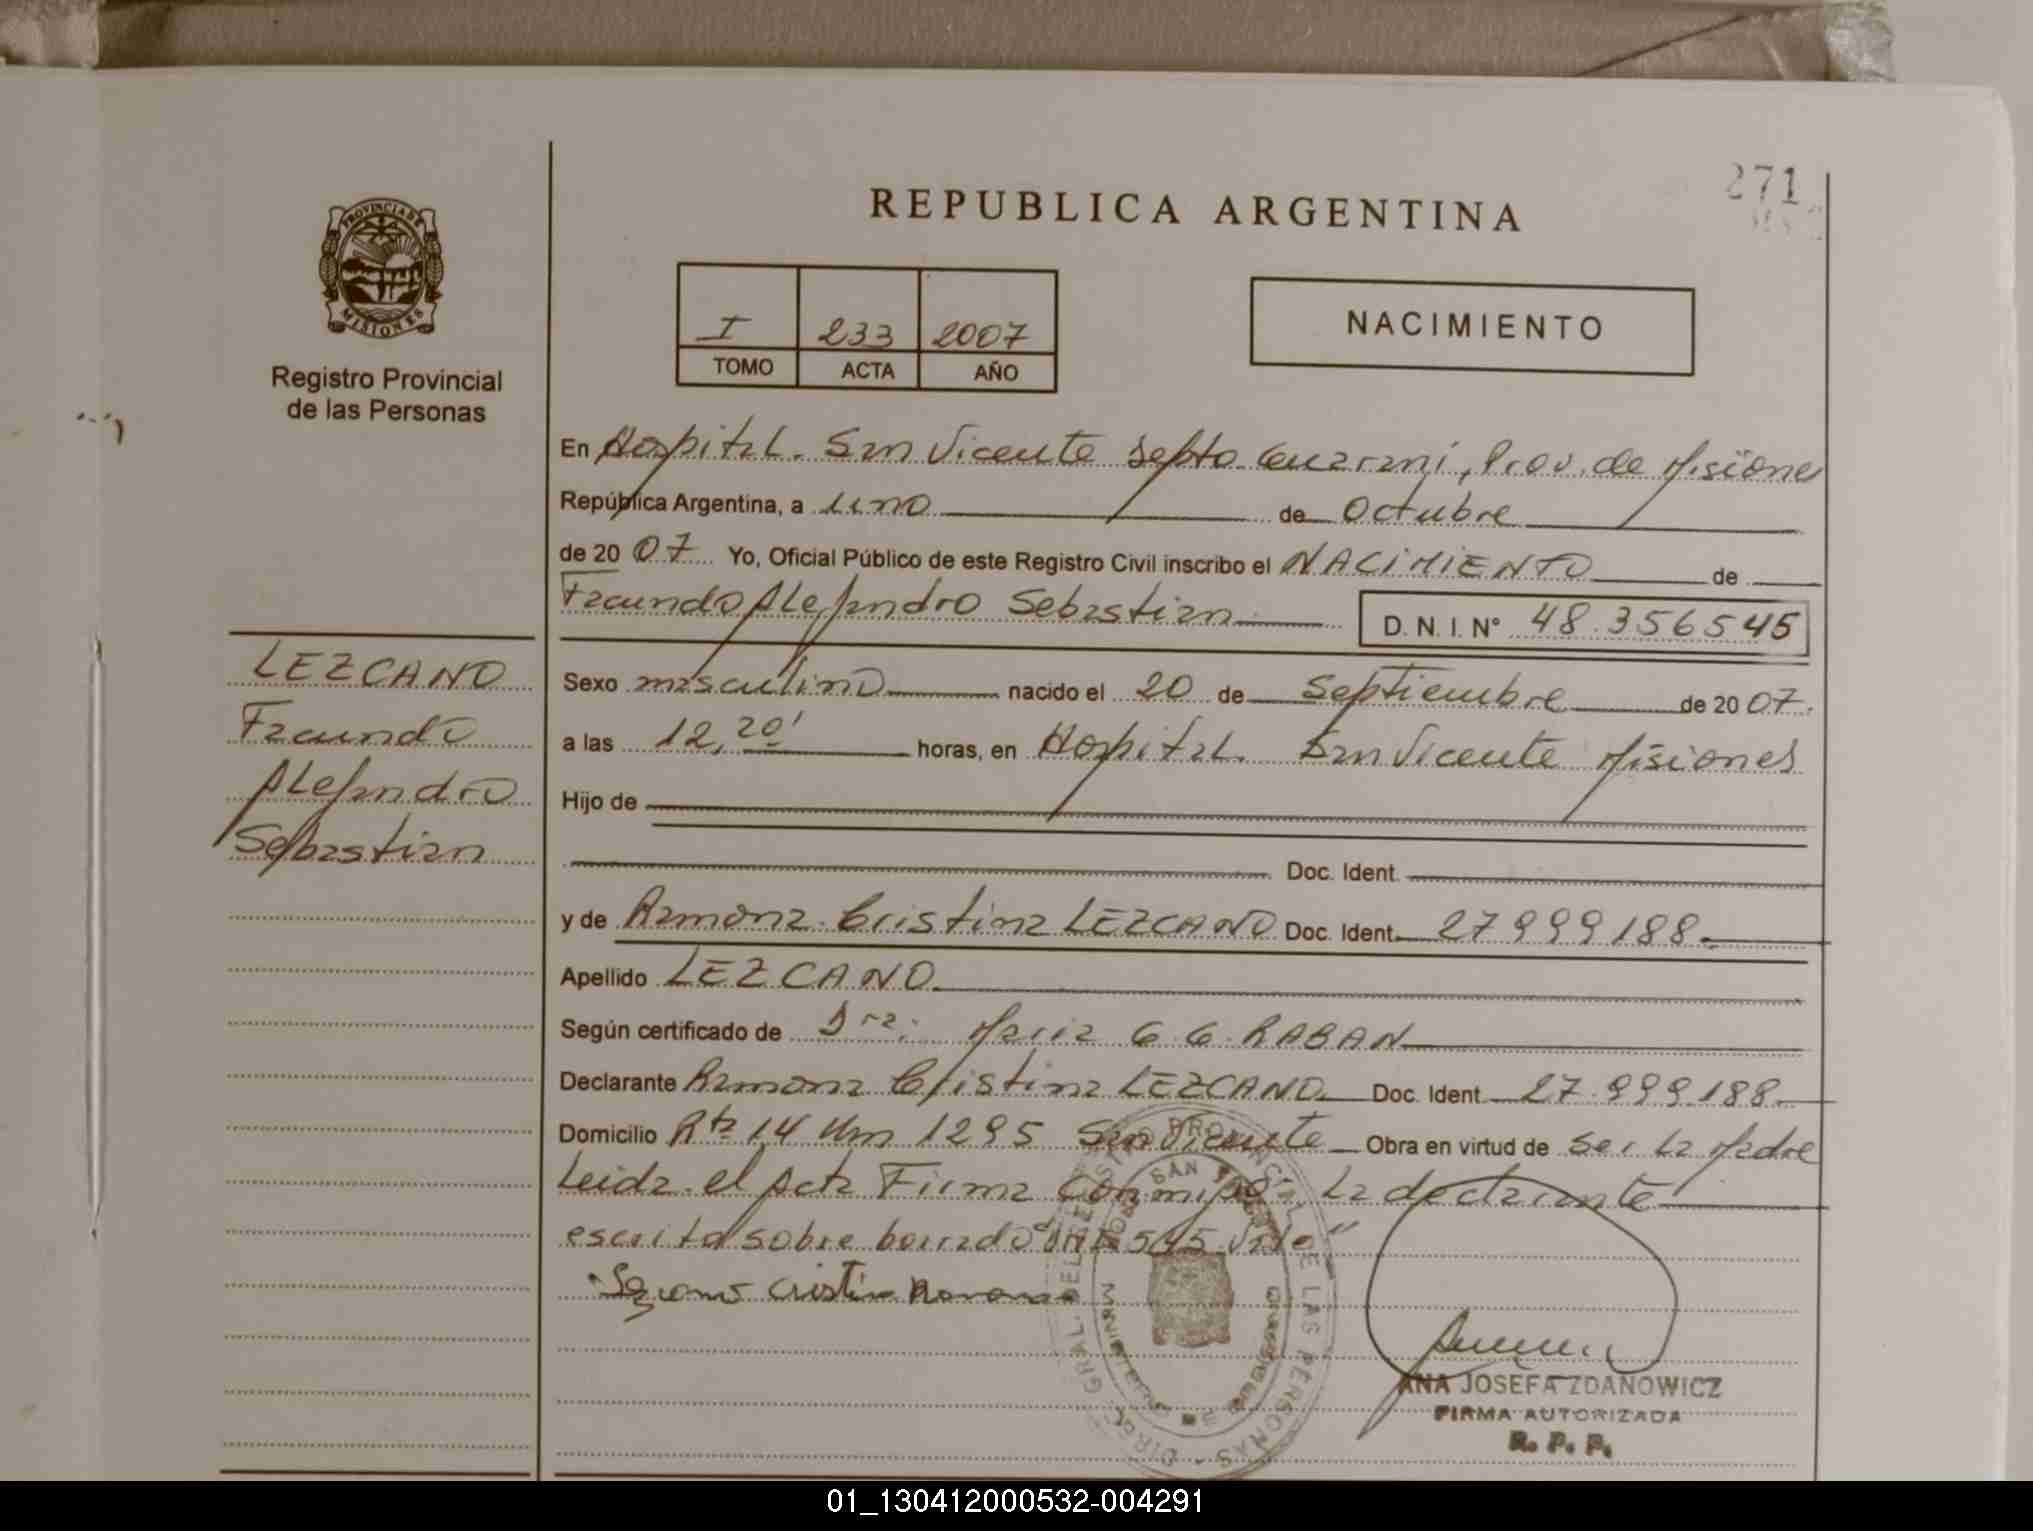 REPUBLICA ARGENTINA
271
PROVINCIA DE
MISIONES
Registro Provincial
de las Personas
I 233 2007
TOMO ACTA AÑO
NACIMIENTO
En Hospital. San Vicente Depto Guarani, Prov. de Misiones
República Argentina, a uno de Octubre
de 2007 Yo, Oficial Público de este Registro Civil inscribo el NACIMIENTO de
Facundo Alejandro Sebastian D. N. I. N° 48.356545
LEZCANO
Facundo
Alejandro
Sebastian
Sexo masculino nacido el 20 de Septiembre de 2007.
a las 12,20' horas, en Hospital. San Vicente Misiones
Hijo de
Doc. Ident.
y de Ramona Cristina LEZCANO Doc. Ident. 27999188
Apellido LEZCANO
Según certificado de Dra. Maria G. G. RABAN
Declarante Ramona Cristina LEZCANO Doc. Ident 27.999.188
Domicilio Rta 14 Km 1295 San Vicente Obra en virtud de ser La Madre
Leida el Acta Firma Con migo La declarante
escrito sobre borrado 545 Vale"
Cristina Ramona
ANA JOSEFA ZDANOWICZ
FIRMA AUTORIZADA
R. P. P.
01_130412000532-004291